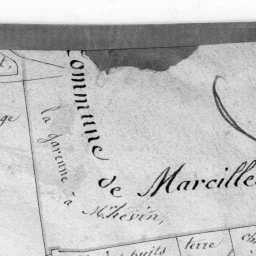 Commune
de Marcille
la garenne
à Mr. hévin,
ge
puits
terre